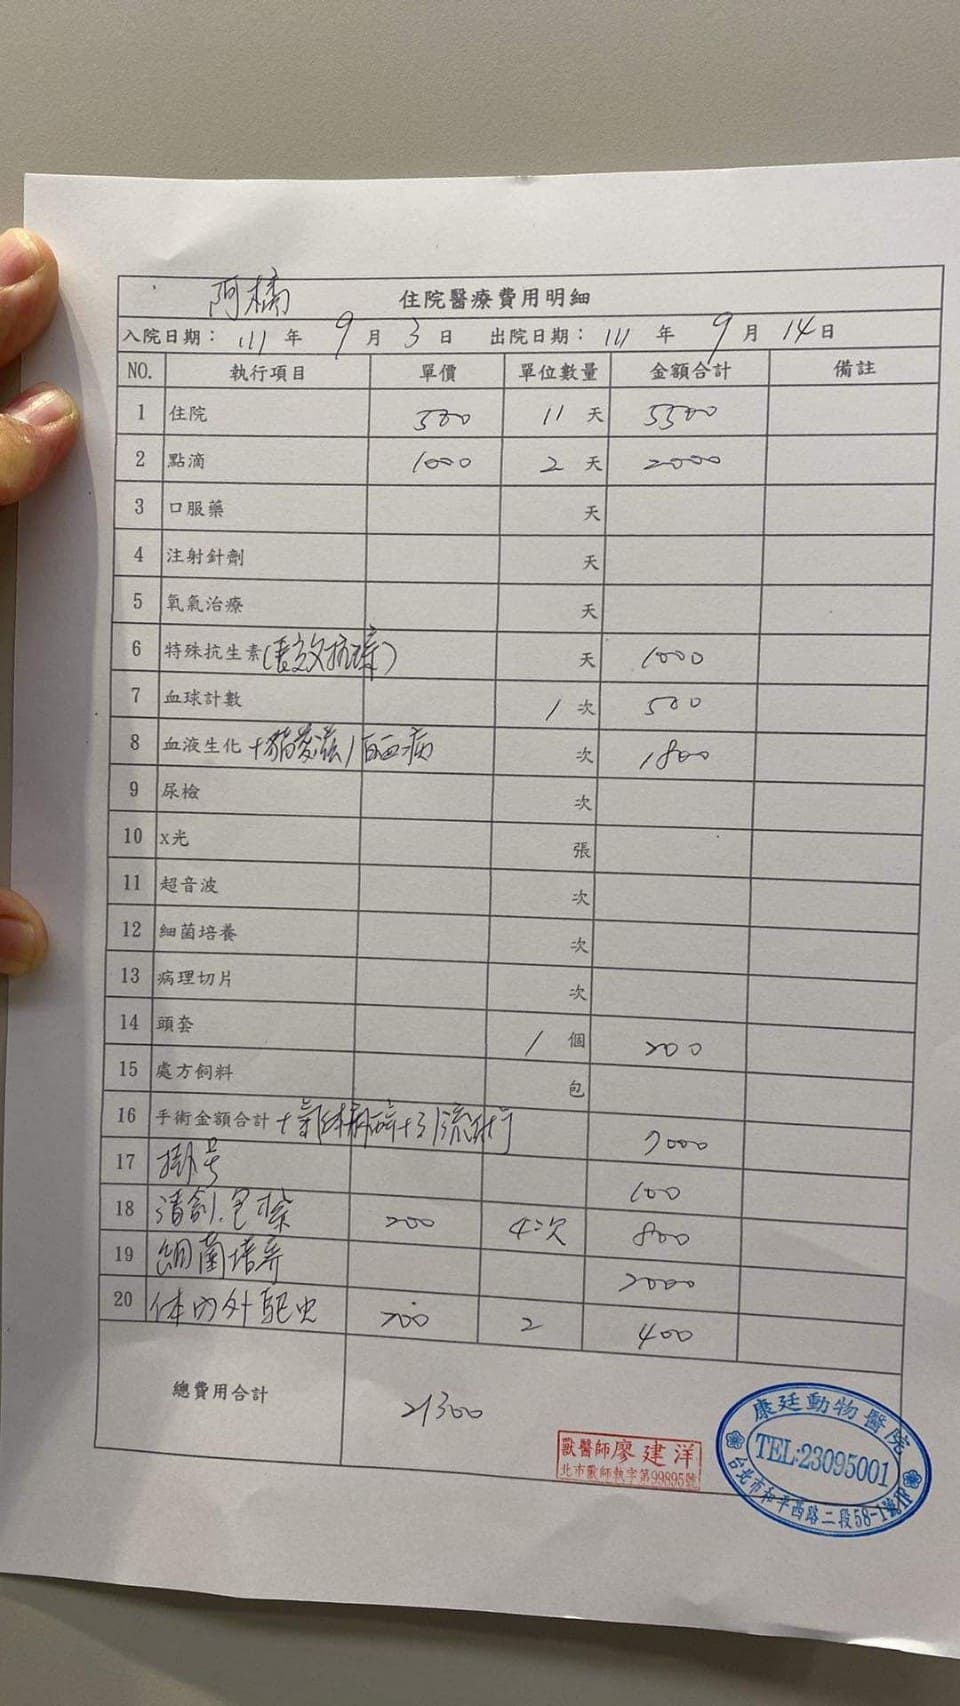 阿橘 住院醫療費用明細
入院日期： 111 年 9 月 3 日 出院日期： 111 年 9 月 14 日
NO. 執行項目 單價 單位數量 金額合計 備註
1 住院 500 11 天 5500
2 點滴 1000 2 天 2000
3 口服藥 天
4 注射針劑 天
5 氧氣治療 天
6 特殊抗生素(長效抗生素) 天 1000
7 血球計數 1 次 500
8 血液生化 +貓愛滋/白血病 次 1800
9 尿檢 次
10 x光 張
11 超音波 次
12 細菌培養 次
13 病理切片 次
14 頭套 1 個 200
15 處方飼料 包
16 手術金額合計 +氣体麻醉+引流 7000
17 掛号 100
18 清創.包紮 200 4次 800
19 細菌培养 2000
20 体內外驅虫 200 2 400
總費用合計 21300
獸醫師廖建洋
北市獸師執字第99895號
康廷動物醫院
TEL:23095001
台北市和平西路二段58-1號1F